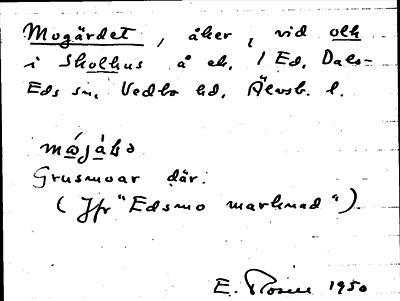 Mogärdet, åker, vid och
i Skolhus å ek. 1 Ed, Dals-
Eds sn, Vedbo hd, Älvsb. l.
Grusmoar där.
(Jfr "Edsmo marknad").
E. Rosell 1950